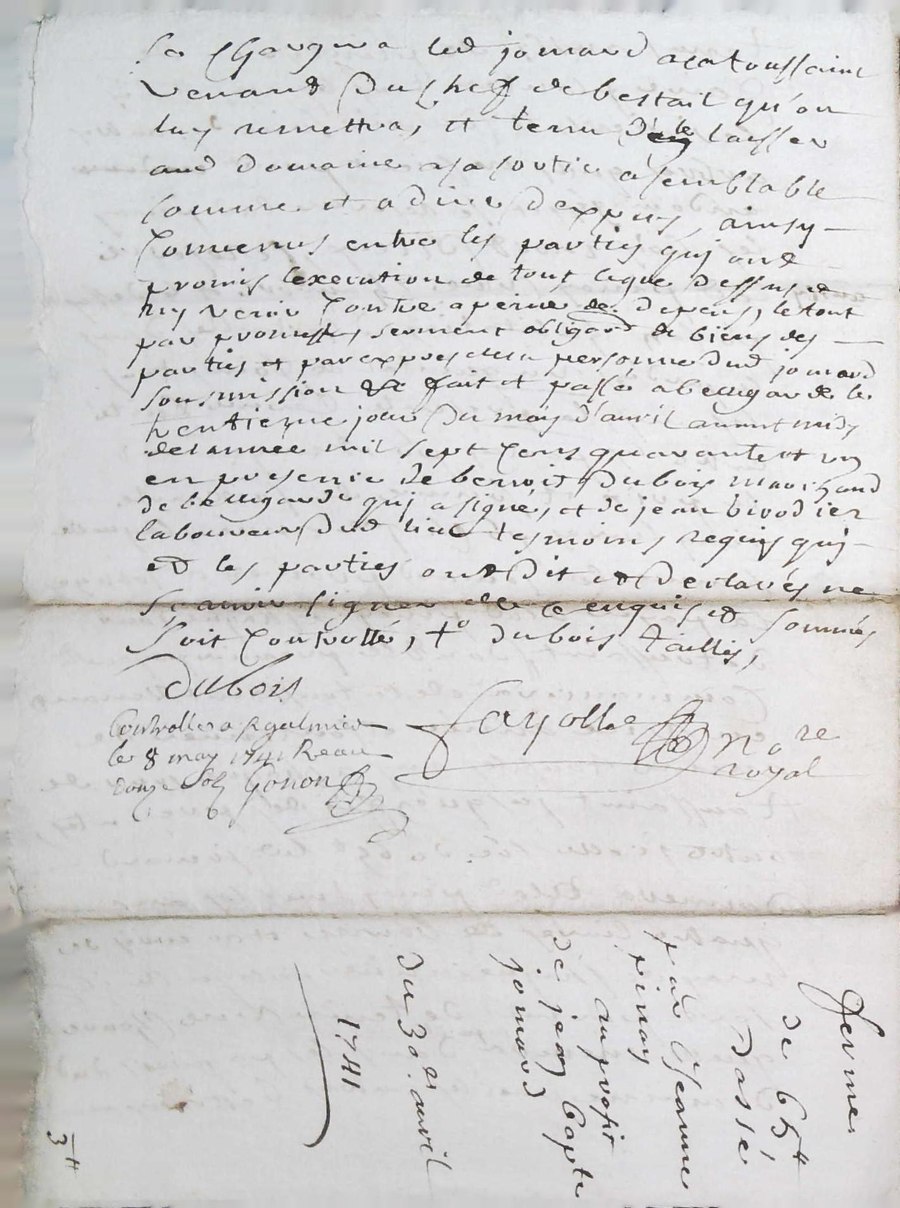 se Chargera led jomard a sa toussaint
venant Du Cheft de bestail qu'on
luy remettra, et tenu D'en le laisser
aud Domaine a sa sortie a semblable
somme et a dire d'expers, ainsy
Convenus entre les parties qui ont
promis lexecution de tout ceque Dessus et
ny venir Contre a peine de Depens, le tout
par promesses, serment obligaon de biens des
parties et par expres de la personne Dud jomard
soumission &c fait et passé a bellegarde le
trentieme jour Du moy D'auril auant midy
de l'année mil sept Cens quarante et un
en presence de benoit Dubois marchand
de bellegarde qui a signé, et de jean birodier
laboureur Dud lieu tesmoins requis qui
et les parties ont Dit et Declarés ne
scavoir signer de ce enquis et sommés
soit Controllé, to dubois taillis,
dubois
Controllé a St galmier
le 8 may 1741 Reçu
douze sols Gonon
fayolle nore
royal
ferme
de 65tt
Passé
par Jeanne
pinay
au profit
de jean bapte
jomard
du 30e auril
1741
3tt